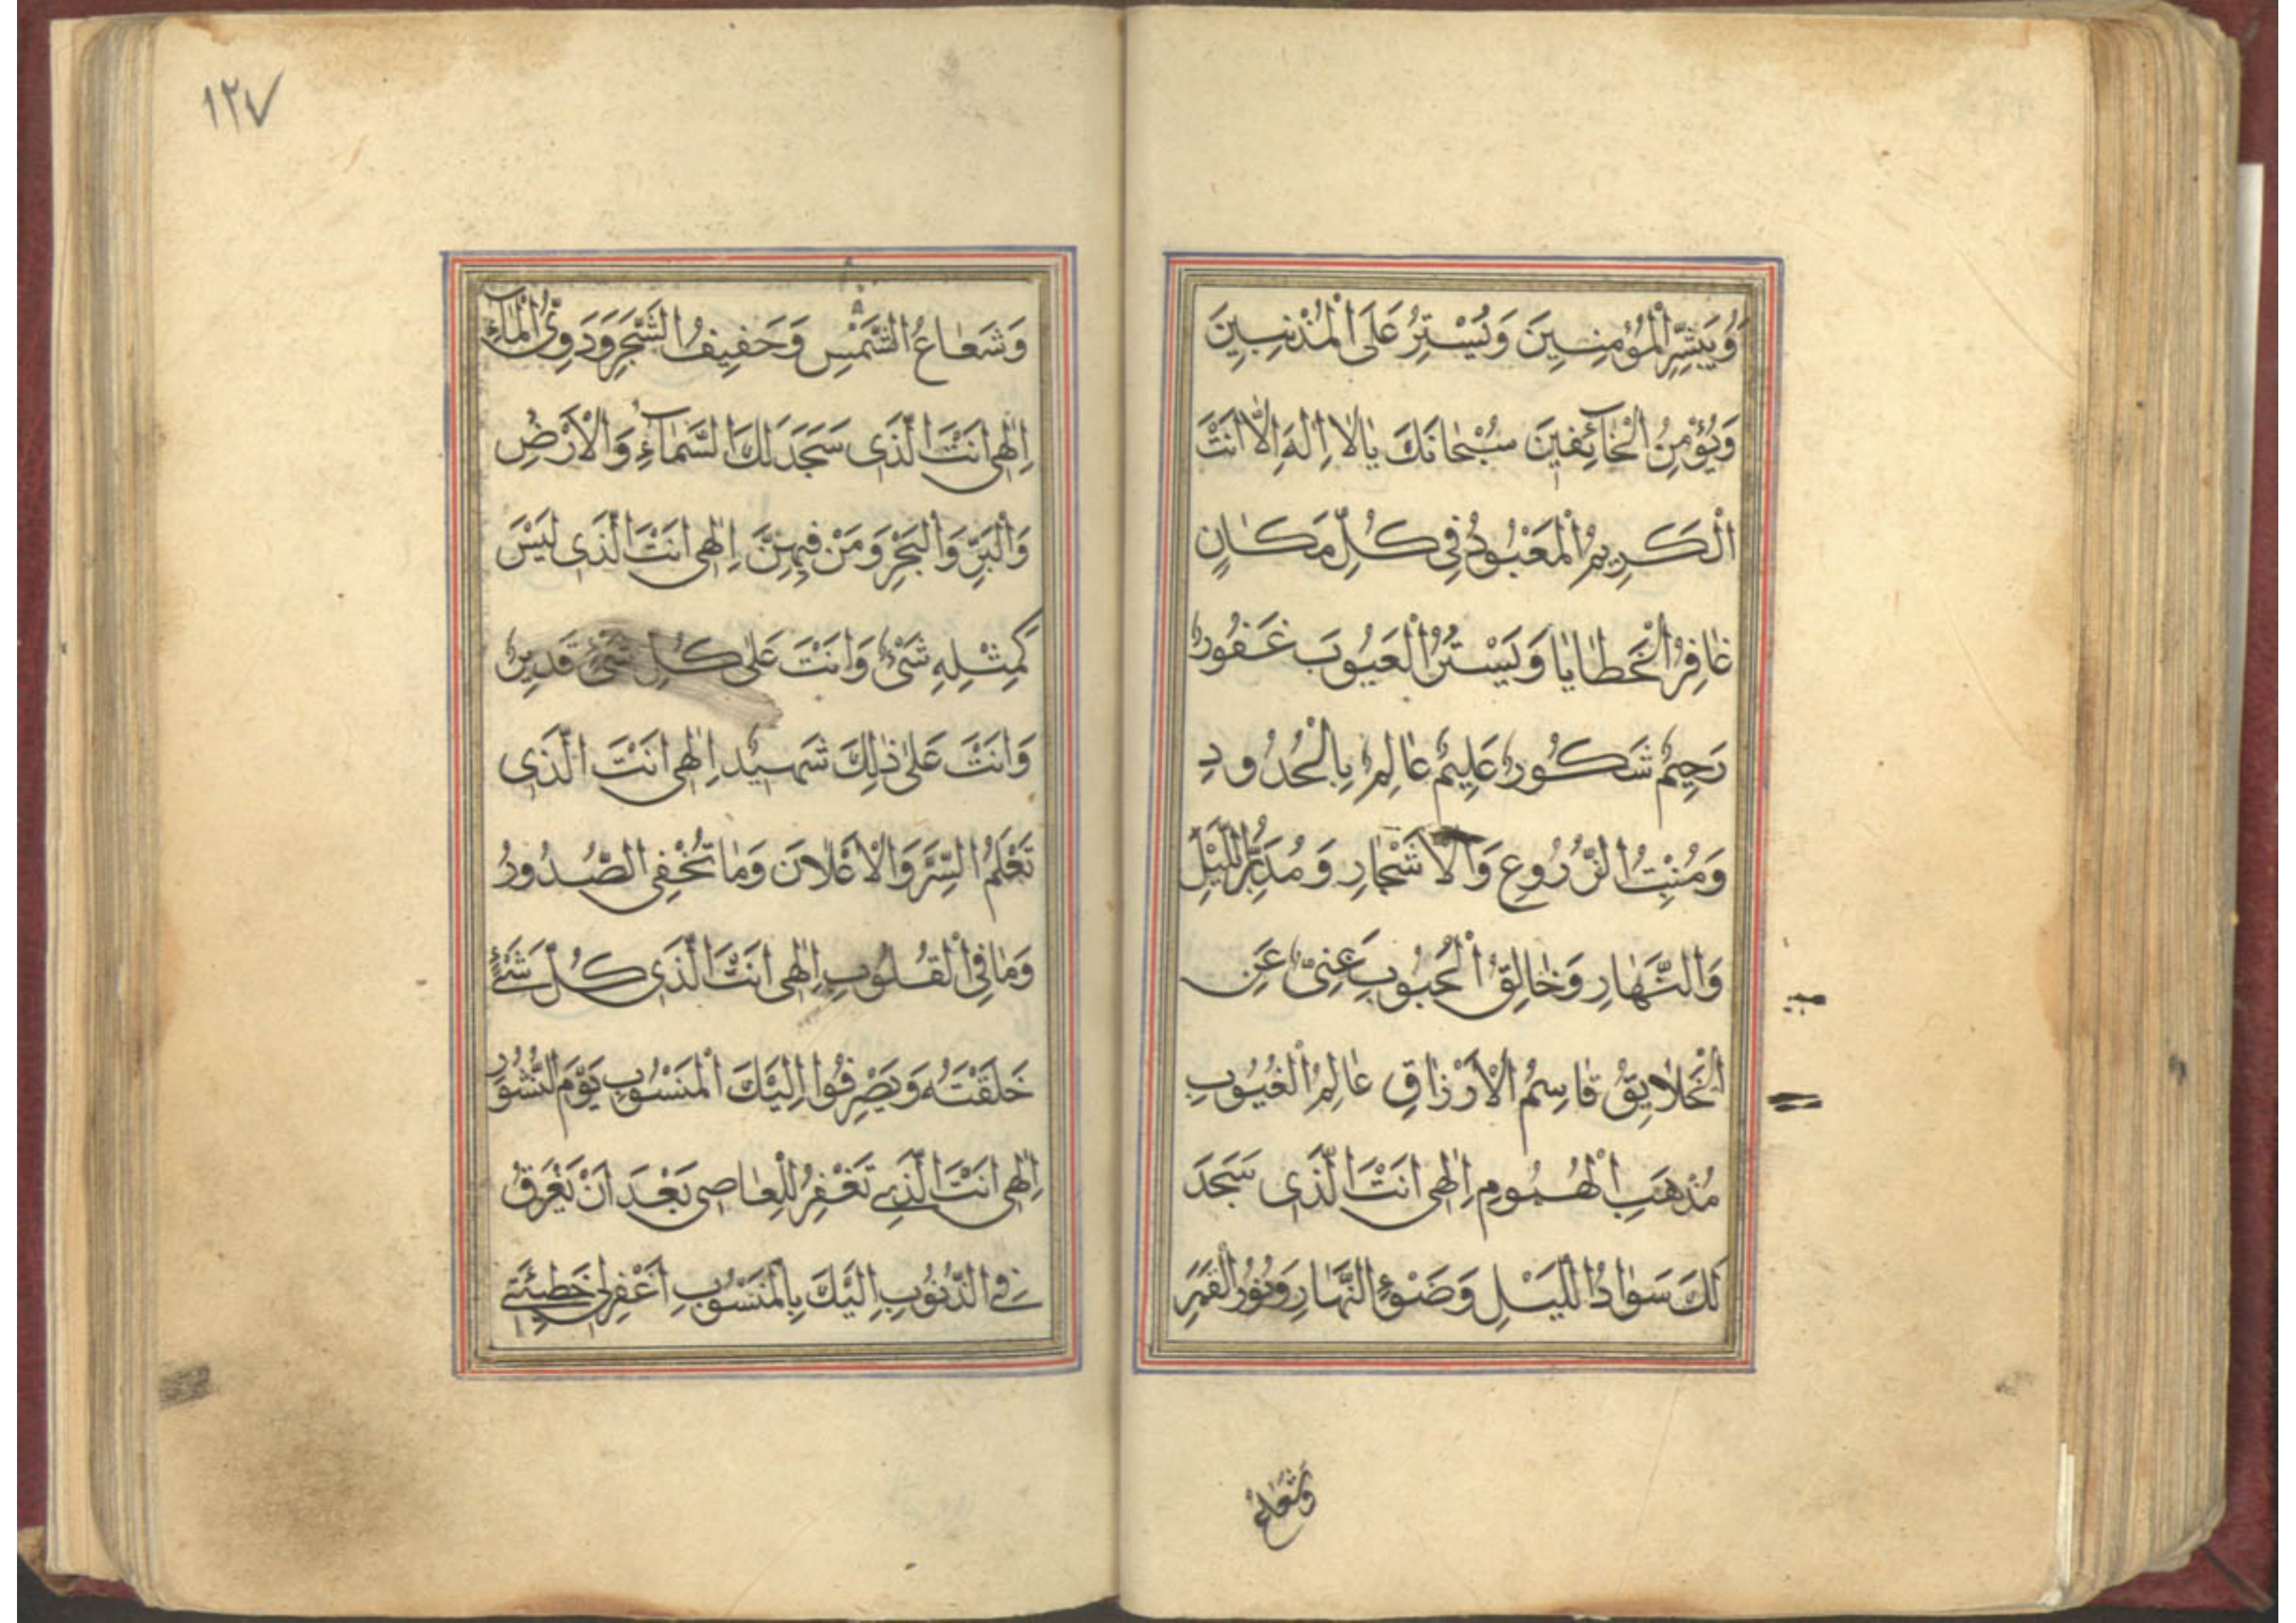 وَيُبَشِّرُ الْمُؤْمِنِينَ وَيُسْتِرُ عَلَى الْمُذْنِبِينَ
وَيُؤْمِنُ الْخَآئِفِينَ سُبْحَانَكَ يَا لَا اِلٰهَ اِلَّا اَنْتَ
اَلْكَرِيمُ الْمَعْبُودُ فِى كُلِّ مَكَانٍ
غَافِرُ الْخَطَايَا وَيَسْتُرُ الْعُيُوبَ غَفُورٌ
رَحِيمٌ شَكُورٌ عَلِيمٌ عَالِمٌ بِالْحُدُودِ
وَمُنْبِتُ الزُّرُوعِ وَالْاَشْجَارِ وَمُدَبِّرُ اللَّيْلِ
وَالنَّهَارِ وَخَالِقُ الْحُبُوبِ غَنِىٌّ عَنِ
الْخَلَايِقْ قَاسِمُ الْاَرْزَاقِ عَالِمُ الْغُيُوبِ
مُذْهِبِ الْهُمُومِ اِلٰهِى اَنْتَ الَّذِى سَجَدَ
لَكَ سَوَادُ اللَّيْلِ وَضَوْءُ النَّهَارِ وَنُورُ الْقَمَرِ
وَشُعَاعُ
١٢٧
وَشُعَاعُ الشَّمْسِ وَحَفِيفُ الشَّجَرِ وَدَوِىُّ الْمَآءِ
اِلٰهِى اَنْتَ الَّذِى سَجَدَ لَكَ السَّمَآءِ وَالْاَرْضِ
وَالْبَرِّ وَالْبَحْرِ وَمَنْ فِيهِنَّ اِلٰهِى اَنْتَ الَّذِى لَيْسَ
كَمِثْلِهِ شَىْءٌ وَاَنْتَ عَلٰى كُلِّ شَىْءٍ قَدِيرٌ
وَاَنْتَ عَلٰى ذٰلِكَ شَهِيدٌ اِلٰهِى اَنْتَ الَّذِى
تَعْلَمُ السِّرَّ وَالْاَعْلَانَ وَمَا تُخْفِى الصُّدُورُ
وَمَا فِى الْقُلُوبِ اِلٰهِى اَنْتَ الَّذِى كُلِّ شَىْءٍ
خَلَقْتَهُ وَيَصْرِفُوا اِلَيْكَ الْمَنْسُوبِ يَوْمَ النُّشُورِ
اِلٰهِى اَنْتَ الَّذِى تَغْفِرُ لِلْعَاصِى بَعْدَ اَنْ يَغْرَقُ
فِى الذُّنُوبِ اِلَيْكَ بِالْمَنْسُوبِ اغْفِرْلِى خَطِيئَتِى